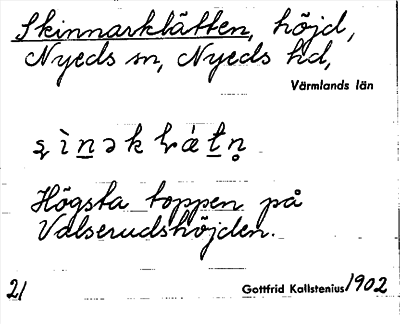 Skinnarklätten, höjd,
Nyeds sn, Nyeds hd,
Värmlands län
Högsta toppen på
Valserudshöjden.
21 Gottfrid Kallstenius 1902